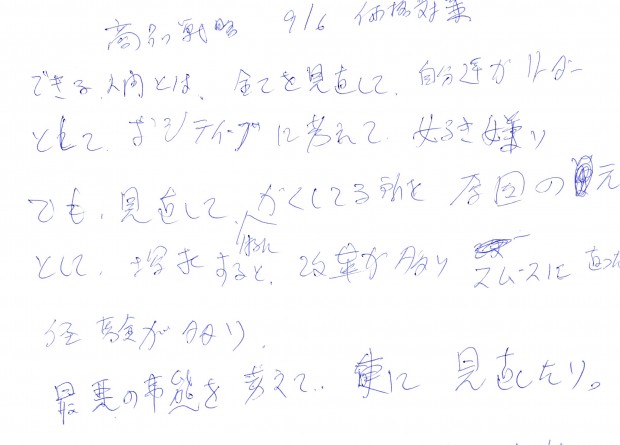 商品戦略 9/6 価格対策
できる人間とは、全てを見直して、自分達がリーダー
として、ポジティーブに考えて、好き嫌い
でも、見直して、かくしてる所を 原因の元
として、すると、改革があり スムースに
経験があり、
最悪の事態を考えて、更に 見直したり。